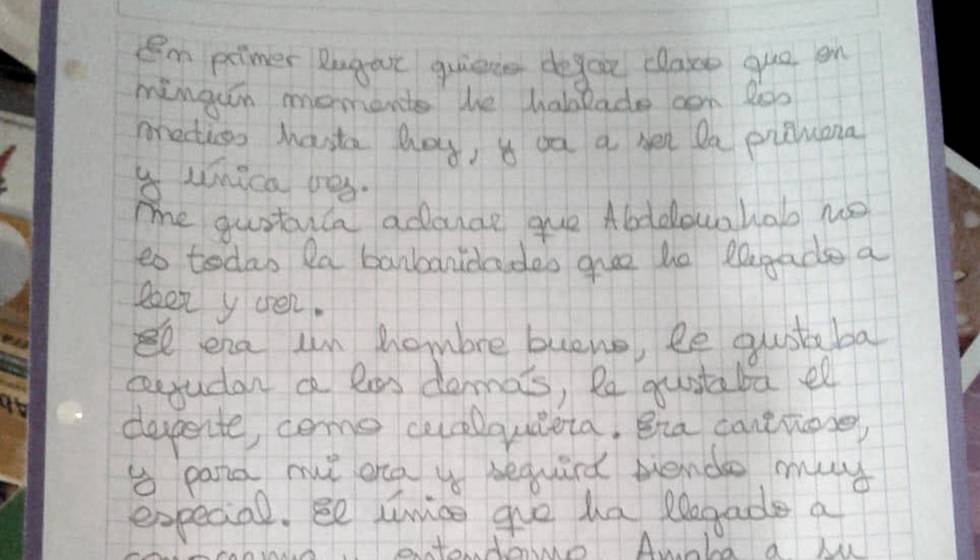 En primer lugar quiero dejar claro que en
ningún momento he hablado con los
medios hasta hoy, y va a ser la primera
y única vez.
Me gustaría aclarar que Abdelouahab no
es todas la barbaridades que he llegado a
leer y ver.
Él era un hombre bueno, le gustaba
ayudar a los demás, le gustaba el
deporte, como cualquiera. Era cariñoso,
y para mi era y seguirá siendo muy
especial. El único que ha llegado a
conocerme y entenderme. Amaba a su